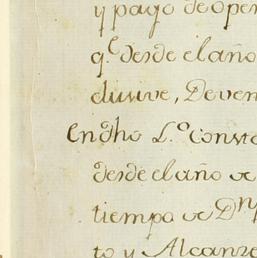 y pago de oper
q.e desde el año
clusive, Deven
En dho L.o consta
desde el año de
tiempo de Dn
to y Alcanze